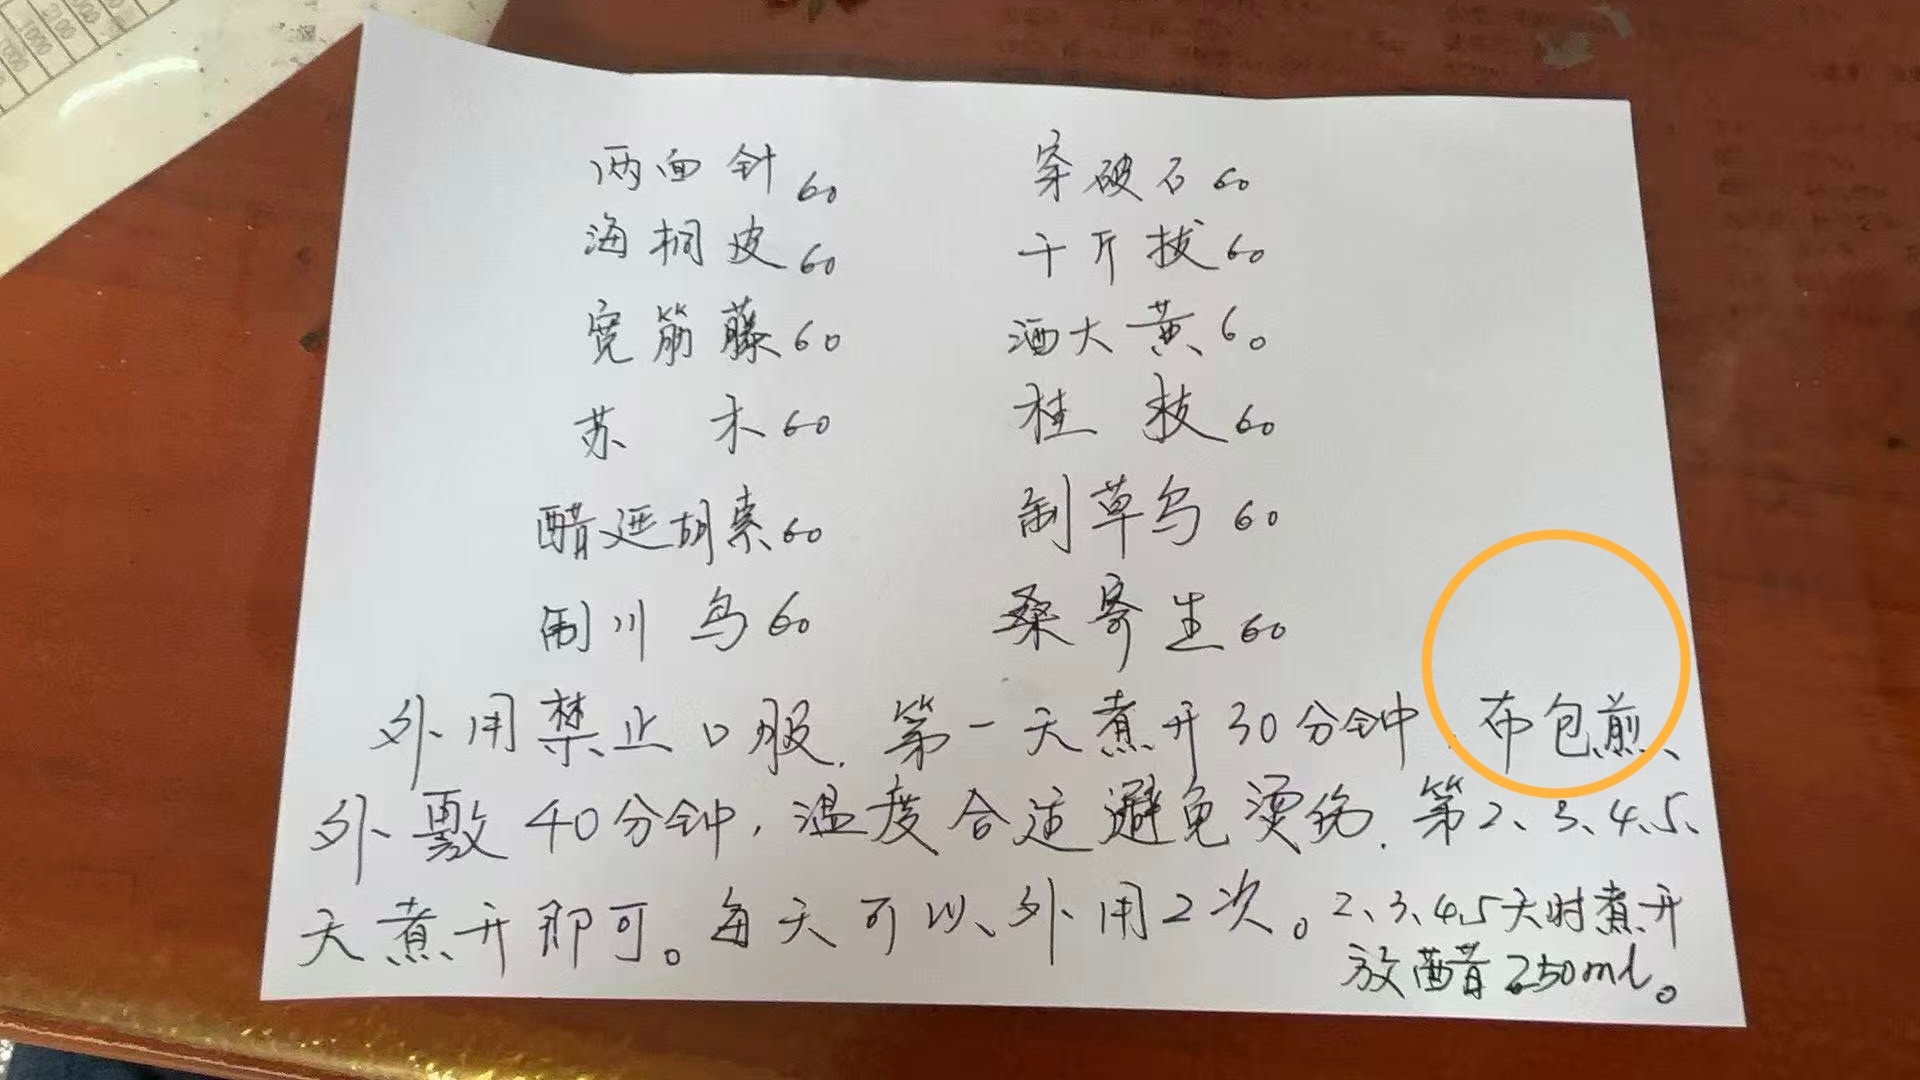 两面针60 穿破石60
海桐皮60 千斤拔60
宽筋藤60 酒大黄60
苏木60 桂枝60
醋延胡索60 制草乌60
制川乌60 桑寄生60
外用禁止口服.第一天煮开30分钟、布包煎、
外敷40分钟,温度合适避免烫伤.第2、3、4、5、
天煮开即可。每天可以外用2次。2、3、4、5天时煮开
放醋250ml。